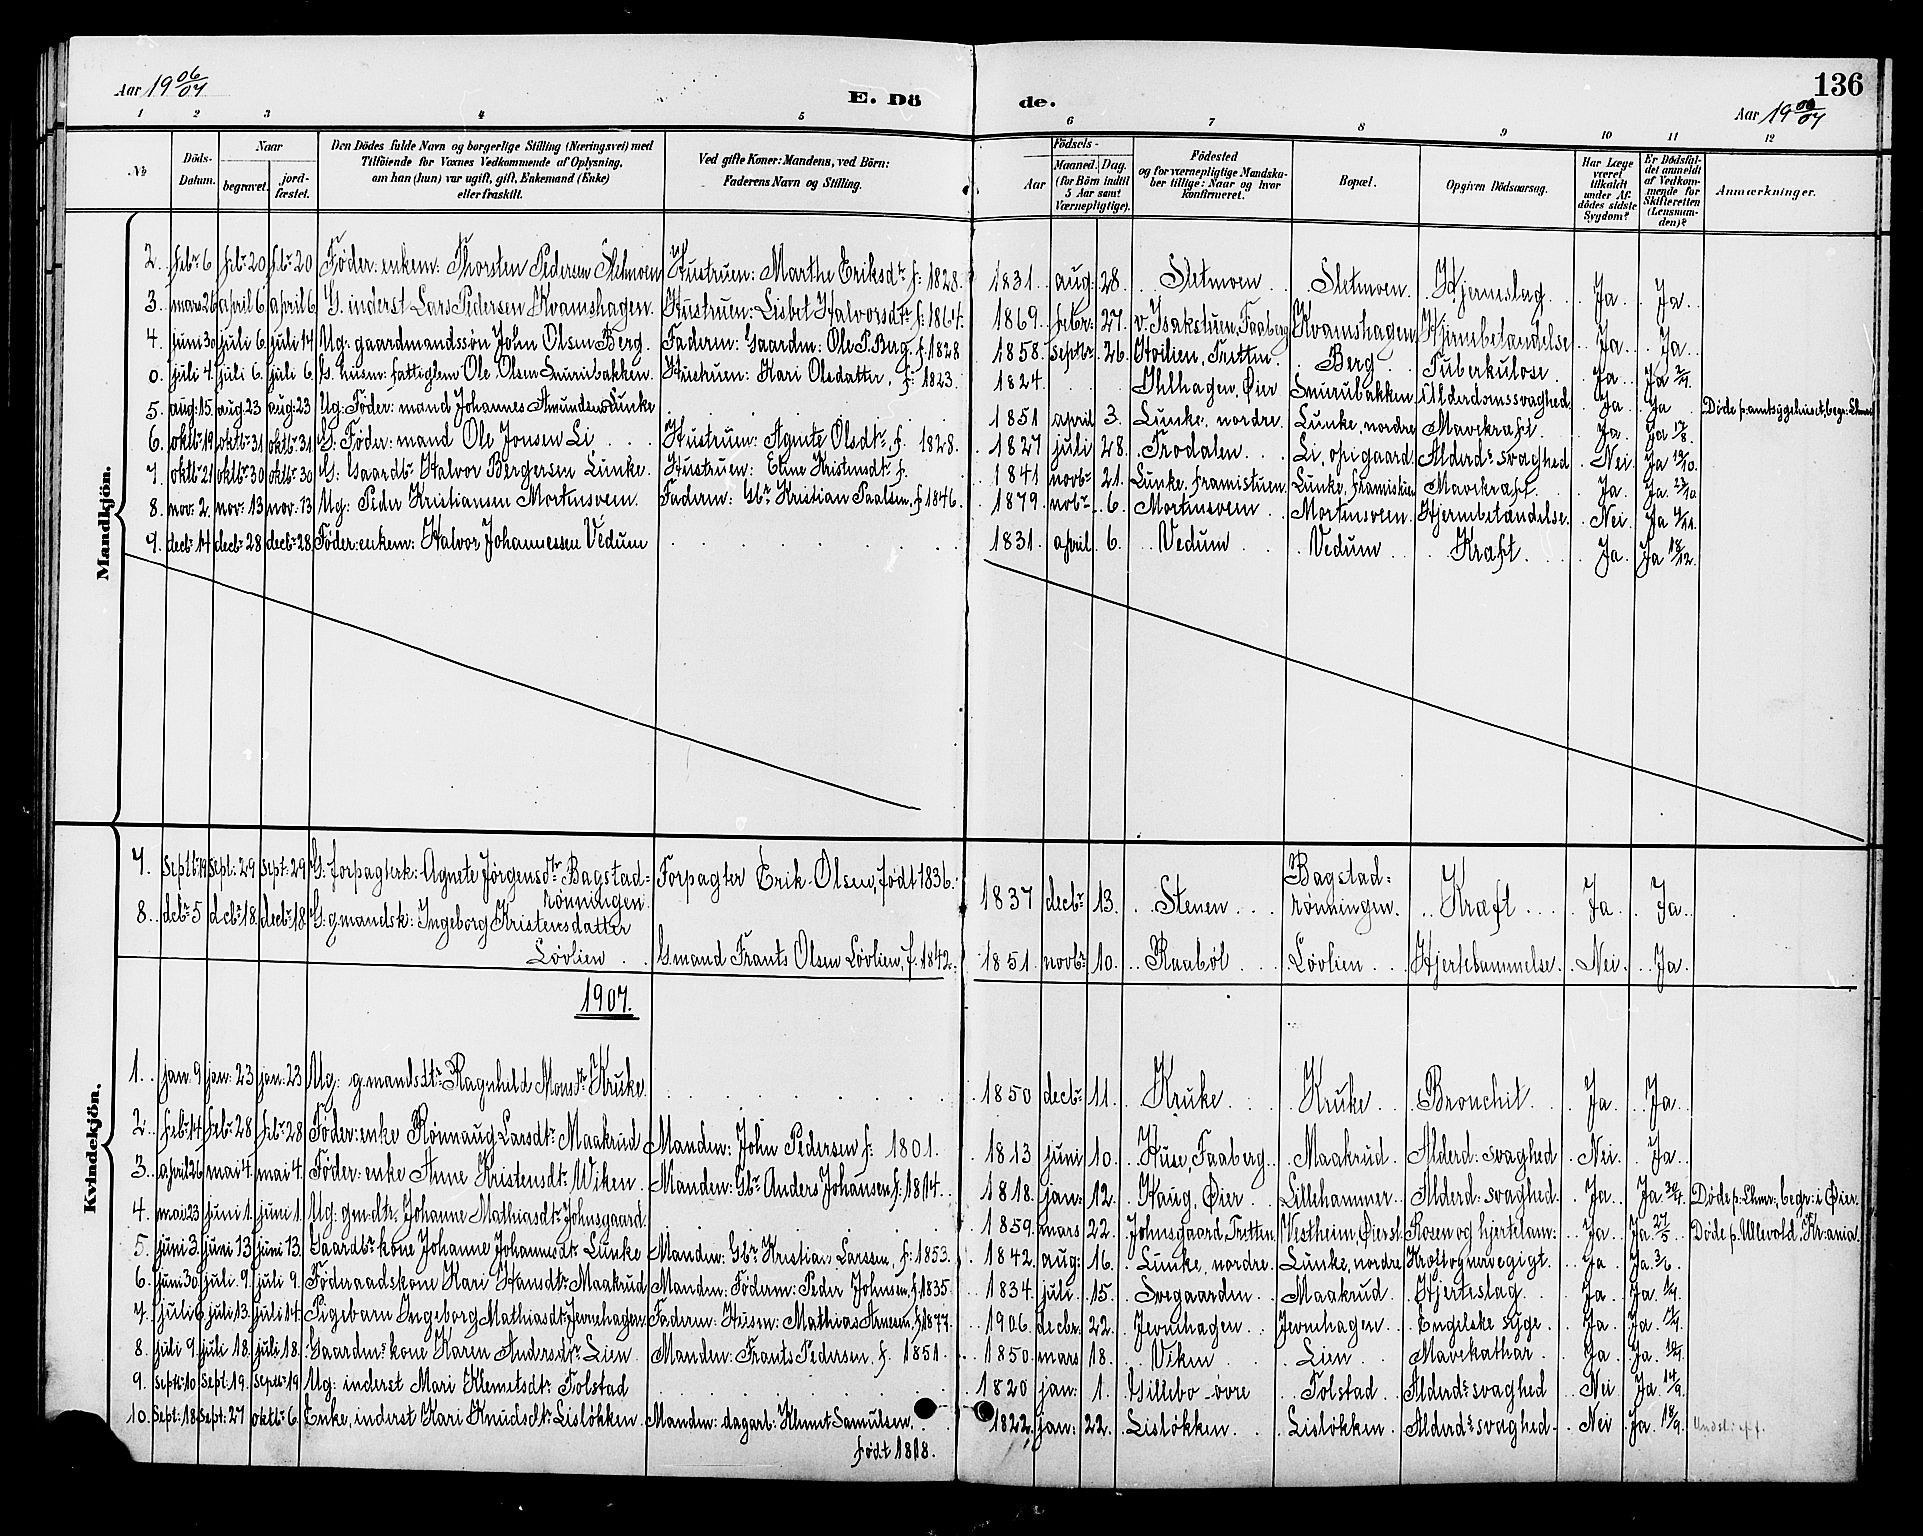 Aar 19 06/07
E. Dö
de.
136
Aar 19 06/07
1 2 3 4 5 6 7 8 9 10 11 12
№
Döds-Datum.
Naar
begravet.
jordfæstet.
Den Dödes fulde Navn og borgerlige Stilling (Næringsvei) med Tilföiende for Voxnes Vedkommende af Oplysning, om han (hun) var ugift, gift, Enkemand (Enke) eller fraskilt.
Ved gifte Koner: Mandens, ved Börn: Faderens Navn og Stilling.
Födsels-
Aar
Maaned.
Dag.
(for Börn indtil 5 Aar samt Værnepligtige).
Födested og for værnepligtige Mandskaber tillige: Naar og hvor konfirmeret.
Bopæl.
Opgiven Dödsaarsag.
Har Læge været tilkaldt under Afdödes sidste Sygdom?
Er Dödsfaldet anmeldt af Vedkommende for Skifteretten (Lensmanden)?
Anmærkninger.
Mandkjön.
2. febr. 6 febr. 20 febr. 20 Føder: enkem: Thorsten Pedersen Sletmoen Hustruen: Marthe Eriksdtr. f: 1828. 1831. aug: 28. Sletmoen Sletmoen Hjerneslag. Ja Ja
3. mars 26 april 6 april 6 G. inderst Lars Pedersen Kvamshagen. Hustruen: Lisbet Halvorsdtr. f: 1864. 1869. febr: 27. v. Isakstuen, Faaberg Kvamshagen Hjernebetændelse Ja Ja
4. juni 30 juli 6. juli 14 Ug: gaardmandssøn John Olsen Berg. Faderen: Gaardm: Ole P. Berg. f. 1828 1858. septbr. 26. Hoilien, Tretten Berg Tuberkulose. Ja Ja 2/7
0. juli 4. juli 6. juli 6. G. husm: fattiglem Ole Olsen Smurubakken. Hustruen: Kari Olsdatter, f: 1823. 1824. Ihlhagen, Øier Smurubakken Alderdomssvaghed. Ja Ja
5. aug: 15. aug: 23 aug: 23 Ug: Føder: mand Johannes Amundsen Lunke 1851 april 3. Lunke, nordre Lunke, nordre Mavekræft Ja Ja 17/8. Døde p: amtsygehuset, begr:
6. oktbr. 19 oktbr. 31 oktbr. 31 G. Føder: mand Ole Jonsen Li Hustruen: Agnete Olsdtr. f. 1828. 1827 juli 28. Frodalen Li, opigaard Alderds svaghed Nei Ja
7. oktbr. 21 oktbr. 30 oktbr. 30 G. Gaardbr. Halvor Bergersen Lunke. Hustruen: Eline Kristensdtr. f. 1841 novbr. 21. Lunke, framistuen. Lunke, framistuen Mavekræft Ja Ja 23/10.
8. nov: 2. nov: 13 nov: 13 Ug: Peder Kristiansen Mortensveen. Faderen: Gbr. Kristian Paalsen. f. 1846. 1879 novbr. 6. Mortensveen Mortensveen Hjernebetændelse. Nei Ja 4/11.
9. decbr. 14 decbr. 28 decbr. 28. Føder: enkem: Halvor Johannessen Vedum 1831 april. 6. Vedum Vedum Kræft. Ja Ja 18/12.
Kvindekjön.
7. Septbr. 19 Sept: 29 Sept: 29 G: forpagterk: Agnete Jørgensdtr. Bagstad= rønningen Forpagter Erik Olsen, født 1836. 1837 decbr. 13. Stenen Bagstad= rønningen. Kræft Ja Ja
8. dcbr. 5 dcbr. 18. decbr. 18 G: gmandsk: Ingeborg Kristensdatter
Løvlien Gmand Frants Olsen Løvlien, f. 1842. 1851. novbr. 10. Raabøl Løvlien Hjertelammelse. Nei Ja.
1907.
1. jan. 9 jan: 23 jan: 23 Ug: gmandsdtr. Ragnhild Monsdtr. Kruke 1850 decbr. 11. Kruke Kruke Bronchit. Ja Ja
2. febr. 14 febr. 28 febr. 28 Føder: enke Rønnaug Larsdtr. Maakrud Manden: John Pedersen f: 1801. 1813 juni 10. Huse, Faaberg Maakrud Alderd: svaghed Nei Ja
3. april 26 mai 4. mai 4. Føder: enke Anne Kristensdtr. Wiken Manden: Gbr. Anders Johansen f: 1814. 1818. jan: 12. Haug, Øier Lillehammer Alderd: svaghed. Ja Ja 30/4. Døde p: Lhmr., begr: i Øier.
4. mai 23 juni 1. juni 1. Ug: gm: dtr. Johanne Mathiasdtr. Johnsgaard. 1859. mars 22. Johnsgaard, Tretten Vestheim, Øier st. Rosen og hjertelam: Ja Ja 27/5 Døde p. Ullevold, Kr:ania.
5. juni 3. juni 13 juni 13. Gaardbr. kone Johanne Johannesdtr. Lunke Manden: Gbr. Kristian Larssen, f: 1853. 1842. aug: 16. Lunke, nordre Lunke, nordre Kræft og nervegigt. Ja Ja 3/6.
6. juni 30 juli. 9. juli 9. Føderaadskone Kari Hansdtr. Maakrud Manden: Føderm: Peder Johnsen. f. 1835. 1834. juli 15. Svegaarden Maakrud Hjerteslag. Ja Ja 1/7.
7. juli 6 juli 13. juli 14. Pigebarn Ingeborg Mathiasdtr. Jevnehagen Faderen: Husm: Mathias Arnesen. f. 1877. 1906. decbr. 22. Jevnehagen Jevnehagen Engelske syge. Ja Ja
8. juli 9. juli 18. juli 18. Gaardm: kone Karen Andersdtr. Lien. Manden: Frants Pedersen. f. 1851. 1850. mars 18. Viken Lien Mavekathar. Ja Ja 10/7.
9. septbr. 10 Sept. 19. Septbr. 19 Ug: inderst Mari Klemetsdtr. Tolstad 1820 jan: 1. Gillebo øvre Tolstad Alderds svaghed Nei Ja 14/9.
10. Sept: 18. Sept: 27 oktbr. 6. Enke, inderst Kari Knudsdtr. Lisløkken. Manden: dagarb: Klemet Samulsen, 1822. jan: 22. Lisløkken Lisløkken Alderds svaghed. Nei Ja 18/9.
født 1818.